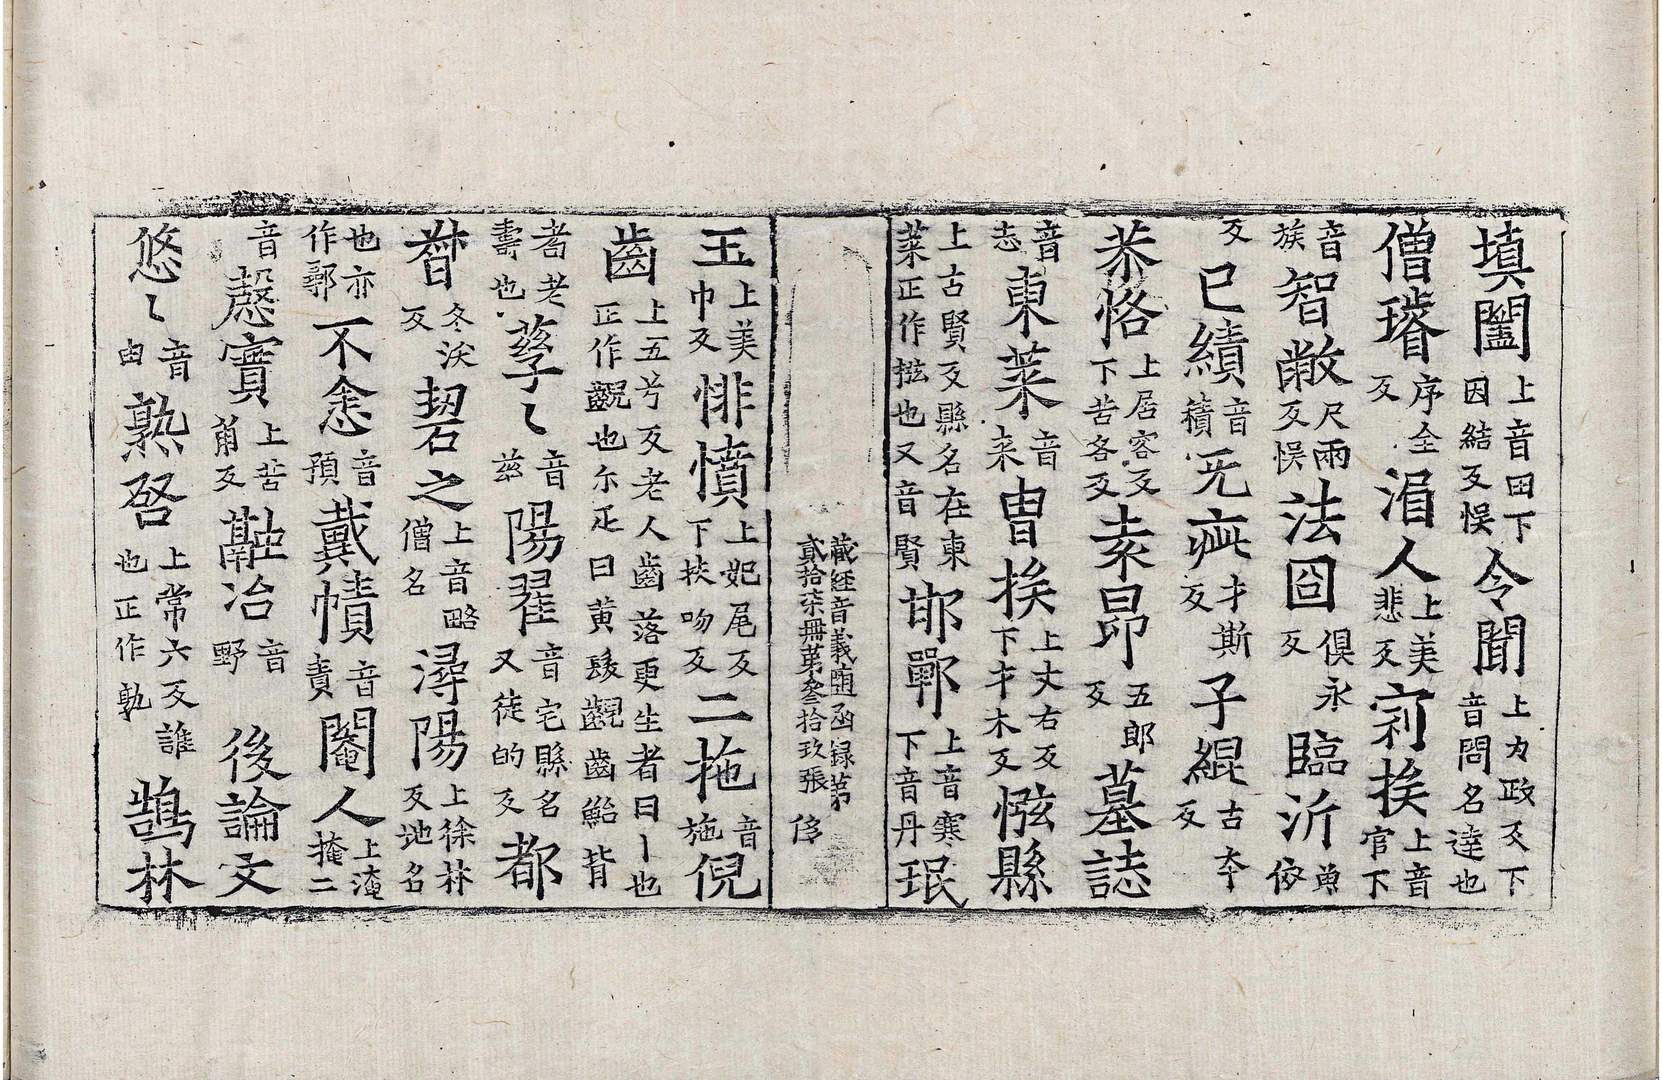 填闉上音田下因結反悮令聞上力政反下音問名達也
僧璿序全反湣人上美悲反㓂挨上音官下
族音智敞尺兩反悮法囧俱永反臨沂魚依
反已績音積无疵才斯反子緄古夲反
恭恪上居容反下苦各反素昂五郎反墓誌
音志東萊音来曺挨上丈右反下才木反㤥縣
上古賢反縣名在東萊正作㤥也又音賢邯鄲上音寒下音丹珉
藏經音義隨函録第貳拾柒冊第叄拾玖張 侈
玉上美巾反悱憤上妃尾反下扶吻反二㧱音施倪
齒上五兮反老人齒落更生者曰丨也正作齯也尔疋曰黄髮齯齒鮐背
耇老壽也孳〻音兹陽翟音宅縣名又徒的反都
督冬㳄反䂮之上音略僧名潯陽上徐林反地名
也亦作鄩不悆音預戴幘音責閹人上淹掩二
音慤實上苦角反融冶音野 後論文
悠〻音由熟啓上常六反誰也正作孰鵲林